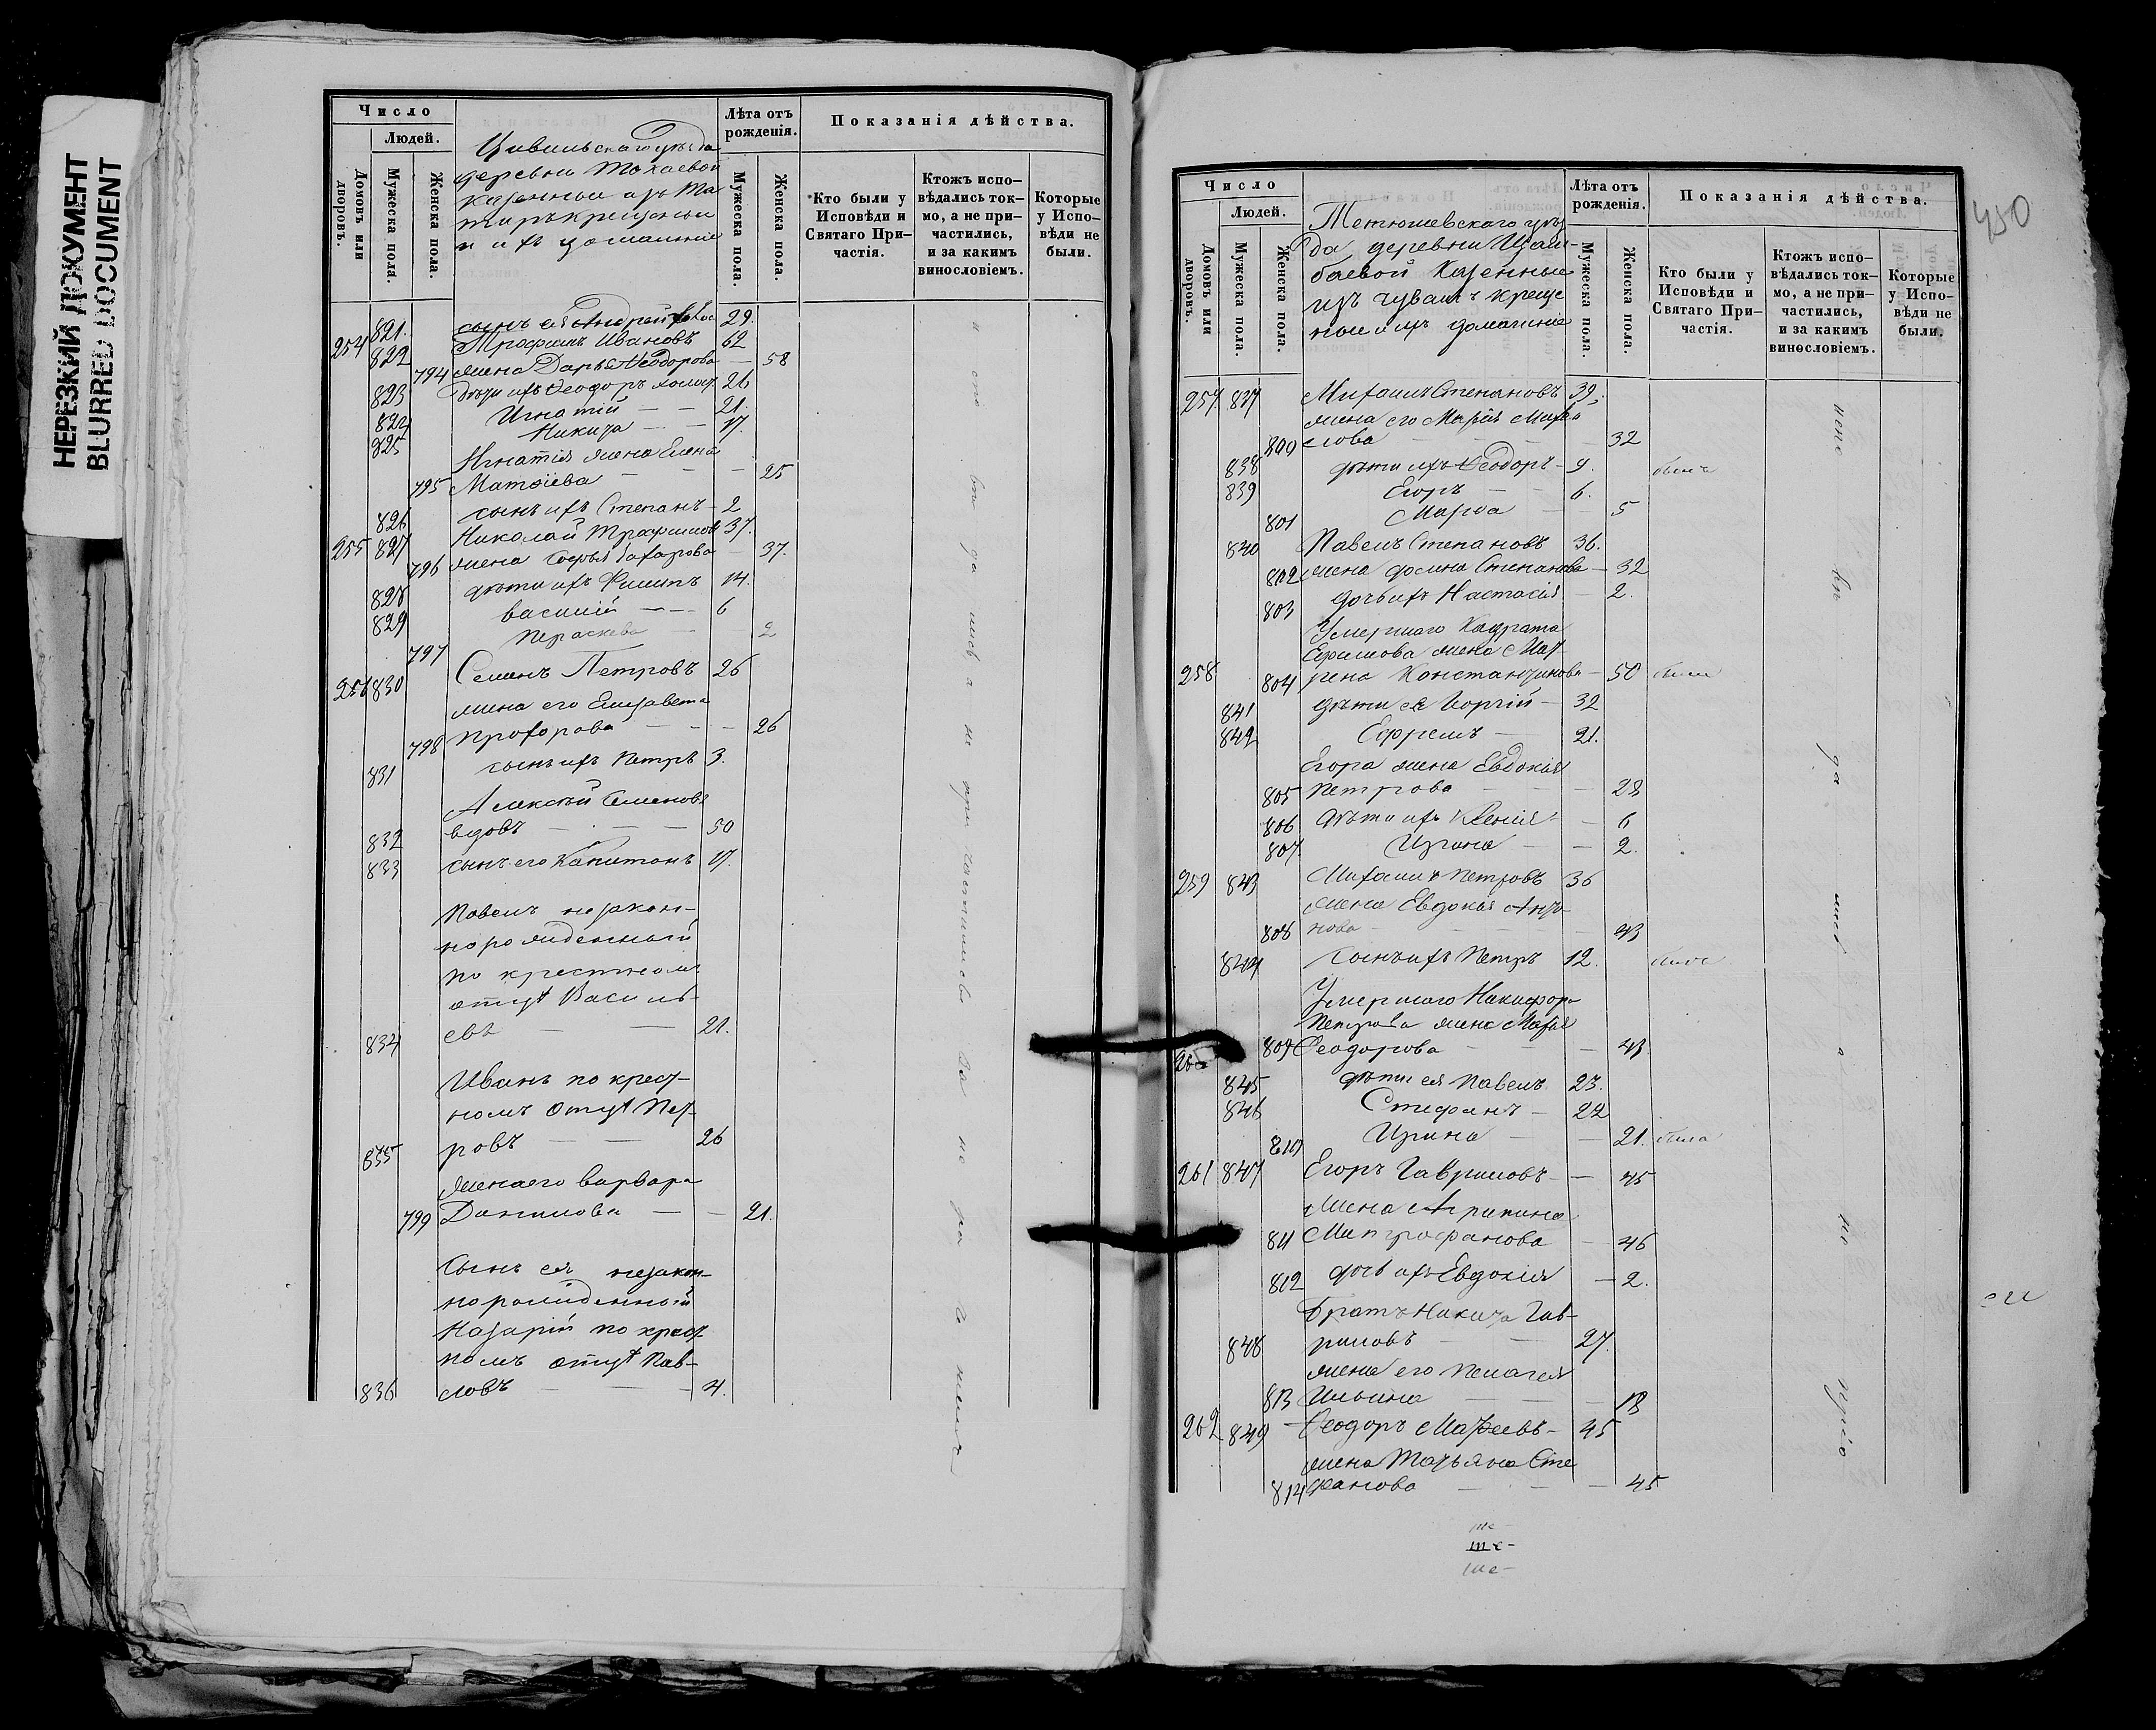 НЕРЕЗКИЙ ДОКУМЕНТ
BLURRED DOCUMENT
Число
Людей.
Домовъ или дворовъ.
Мужеска пола.
Женска пола.
Цивильскаго уѣзда
деревни Токаевой
казенныи изъ Та
таръ крещеныи
и ихъ домашніе
Лѣта отъ рожденія.
Мужеска пола.
Женска пола.
Показанія дѣйства.
Кто были у Исповѣди и Святаго При-частія.
Ктожъ испо-вѣдались ток-мо, а не при-частились, и за какимъ винословіемъ.
Которые у Испо-вѣди не были.
821. сынъ ея Андрей 29.
254 822 Трофимъ Ивановъ 62
794 жена Дарья Ѳеодорова — 58
823 дѣти ихъ Ѳеодоръ холост 26
824 Игнатій — — 21.
825 Никита — — 17.
Игнатія жена Елена
795 Матѳіева — — 25
826 сынъ ихъ Степанъ — 2
255 827 Николай Трофимовъ 37.
796 жена Софья Захарова — 37.
828 дѣти ихъ Филипъ 14.
829 Василій — — 6
797 Параскева — 2
256 830 Семенъ Петровъ 26
жена его Елизавета
798 Прохорова — — — 26
831 сынъ ихъ Петръ 3.
Алексѣй Семеновъ
832 вдовъ — — — 50
833 сынъ его Капитонъ 17.
Павелъ незакон-
норожденный
по крестному
отцу Василь-
834 евъ — — 21.
Иванъ по крест-
номъ отцу Пет-
835 ровъ — — 26
жена его Варвара
799 Данилова — — 21.
Сынъ ея незакон-
норожденный
Назарій по крест
номъ отцу Пав-
836 ловъ — — — 4.
450
Число
Людей.
Домовъ или дворовъ.
Мужеска пола.
Женска пола.
Тетюшевскаго уѣз
да деревни Шам-
баевой Казенные
изъ чувашъ креще
ныи и ихъ домашніе
Лѣта отъ рожденія.
Мужеска пола.
Женска пола.
Показанія дѣйства.
Кто были у Исповѣди и Святаго При-частія.
Ктожъ испо-вѣдались ток-мо, а не при-частились, и за какимъ винословіемъ.
Которые у Испо-вѣди не были.
257 837 Михаилъ Степановъ 39.
жена его Марія Михай
800 лова — 32
838 дѣти ихъ Ѳеодоръ — 9.
839 Егоръ — — 6.
801 Марѳа — — 5
840 Павелъ Степановъ 36.
802 жена Степанова — 32
803 дочь ихъ Настасія — 2.
Умершаго Кодрата
Ефимова жена Мат
258 804 рена Константинова — 50 была
841 дѣти ея Георгій — 32
842 Ефремъ — 21.
Егора жена Евдокія
805 Петрова — — 28
806 дѣти ихъ Ксенія — 6
807. Ирина — — 2.
259 843 Михаилъ Петровъ 36
жена Евдокія Анто-
808 нова — — 43
844 сынъ ихъ Петръ 12.
Умершаго Никифора
Петрова жена Марья
260 809 Ѳеодорова — — 43
845 дѣти ея Павелъ 23.
846 Стефанъ — 22
810 Ирина — — 21. была
261 847 Егоръ Гавриловъ — — 45
жена Агрипина
811 Митрофанова — 46
812 дочь ихъ Евдокія — 2.
Братъ Никита Гав-
848 риловъ — — 27.
жена его Пелагея
813 Ильина — — — 18
262 849 Ѳеодоръ Матѳеевъ — 45
жена Татьяна Сте
814 панова — — — 45